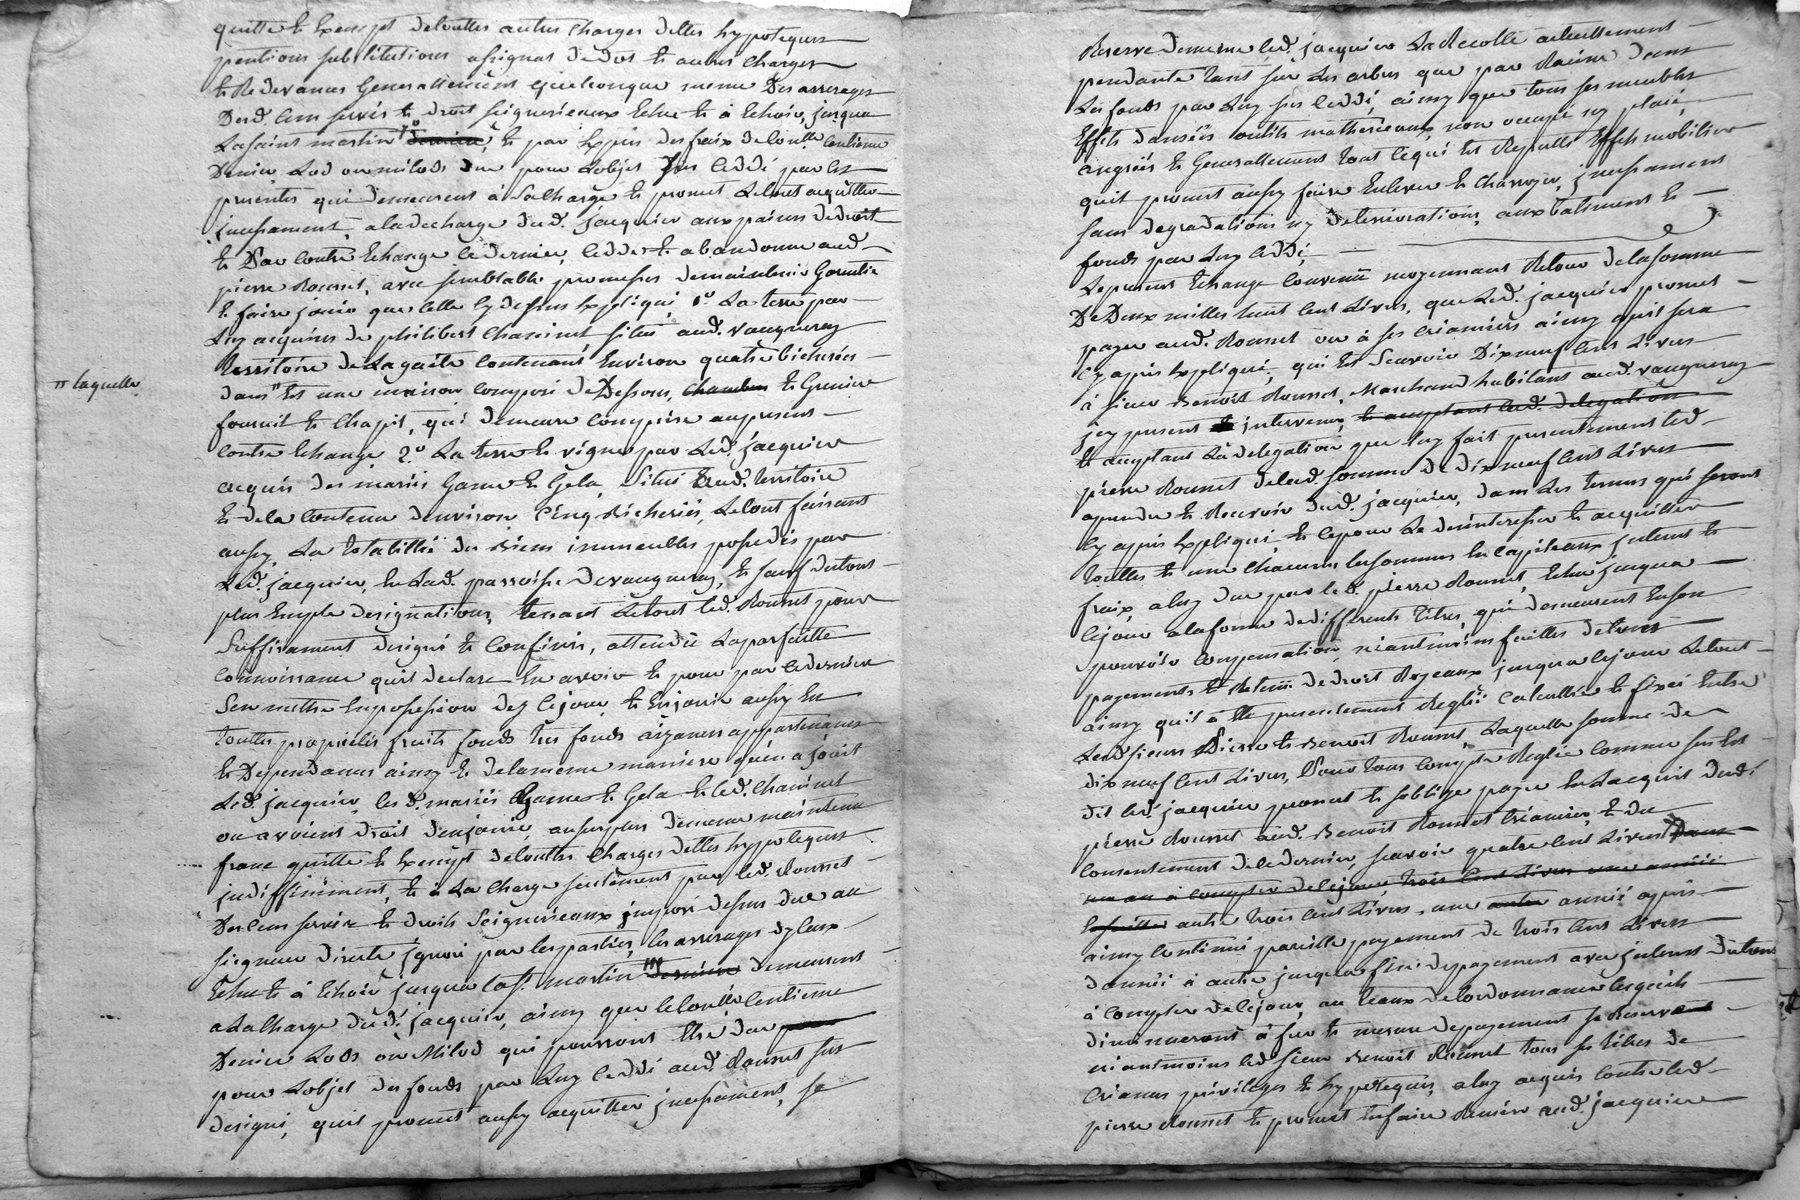 quitte et exempt detouttes autres charges dettes hypoteques
pentions substitutions assignat de dot et autres charges
et Redevances Generallement quelconque meme Des arrerages
Desd. cens servis et droit seigneuriaux Echu et à Echoir, jusqua
Lasaint martin, et par Exprés des fraix de Controlle Centieme
Denier Lod ou milods due pour Lobjet par Luy Ceddé par les
presentes qui demeurent à sa Charge et promet Le tout acquitter
jncessament, aladecharge dud. jacquier aux peines de droit
et Par Contre Echange ce dernier, cedde et abandonne aud.
pierre Rousset, avec semblable promesses de maintenir Garentir
et faire jouir que celle cy dessus Expliqué, 1° La terre par
Luy acquise de philibert Chacinet située aud. vaugneray
territoire de Lagaële contenant Environ quatre bicherées
" laquelle
dans " est une maison composé de Dessous, chambre et Grenier
fournit et Chapit, qui demeure comprise aupresent
contre Echange 2° La terre et vigne par Led. jacquier
acquis des mariés Game et Gela, situé Aud. territoire
et de la Contenue denviron Cinq Bicherées, Letout faisant
aussy La totallité des Biens immeubles possedés par
Led. jacquier, En Lad. parroisse de vaugneray, et sauf detout
plus Emple designation, tenant Letout led. Rousset pour
suffisament designé et Confiné, attendu Laparfaitte
Connoissance quil declare En avoir et pour par ce dernier
sen mettre En possession dez cejour, et En jouir aussy En
touttes proprietés fruits fonds tres fonds aizances appartenances
et Dependances ainsy et de la meme maniere quen a jouit
Led. jacquier, les d. mariés Game et Gela et led. Chacinet
ou avoient droit d'en jouir, au surplus de meme maintenu
franc quitte et Exempt de touttes Charges dettes hypoteques
jndiffiniment, et à La Charge seulement par led. Rousset
Des cens servis et droits Seigneuriaux jmposé dessus due au
seigneur directe jgnoré par les parties, les arrerages dyceux
Echu et à Echoir jusqua las.t martin demeurent
ala Charge dud. jacquier, ainsy que le Controlle Centieme
Denier Lods ou Milod qui pourront Etre due
pour Lobjet des fonds par Luy Ceddé aud. Rousset sus
designé, quil promet aussy acquitter jncessament, se
Reserve de meme led. jacquier La Recolte actuellement
pendante tant sur Les arbres que par Racine dans
Les fonds par Luy sus Ceddé, ainsy que tous ses meubles
Effets danrées outils matheriaux non occupé ny placé,
angrais et Generallement tout ce qui Est Reputté Effets mobilier
quil promet aussy faire Enlever et Charroyer, jncessament
sans degradations ny detterioration, aux batiment et
fonds par Luy Ceddé;
Le present Echange convenu moyennant Retour de la somme
De Deux milles huit Cent Livres, que Led. jacquier promet
payer aud. Rousset ou à ses créanciers ainsy quil sera
cy apres Expliqué, qui Est Scavoir Dix neuf Cent Livres
à sieur Benoit Rousset, Marchand habitant aud. vaugneray
jcy present et intervenu, et acceptant Lad. delegation
et acceptant La delegation que luy fait presentement led.
pierre Rousset de Lad. somme de dix neuf Cent Livres
aprendre et Recevoir dud. jacquier, dans Les termes qui seront
cy apres Expliqué, et ce pour Le desinteresser et acquitter
touttes et une chacune les sommes En Capiteaux, jnterest et
fraix, a luy due par led. pierre Rousset, Echu jusqua
cejour a la forme de differents titres, qui demeurent En son
pouvoir Compensation neantmoins faittes de tous
payements et Retenue de droit Royeaux jusqua cejour Letout
ainsy quil à Eté presentement Reglé Calcullé et fixés Entre
Lesd. sieurs Pierre et Benoit Rousset, Laquelle somme de
dix neuf Cent Livres, Pour tous Compte Reglé comme sus Est
dit led. jacquier promet et soblige payer En Lacquit dudi
pierre Rousset aud. Benoit Rousset Créancier, et du
consentement de ce dernier, scavoir quatre cent Livres dans
un an à compter de cejour trois cent Livres une année
Ensuitte autre trois cent Livres, une autre année après
ainsy Continué pareille payement de trois Cent Livres
dannée à autre jusqua finir depayement avec jnterest dutout
à compter decejour, au taux delordonnance lesquels
diminueront à fur et mesure depayement se Reservant
néantmoins led. sieur Benoit Rousset tous ses titres de
Créances privileges et hypoteques, a luy acquis Contre led.
pierre Rousset et promet En faire Remise aud. jacquier